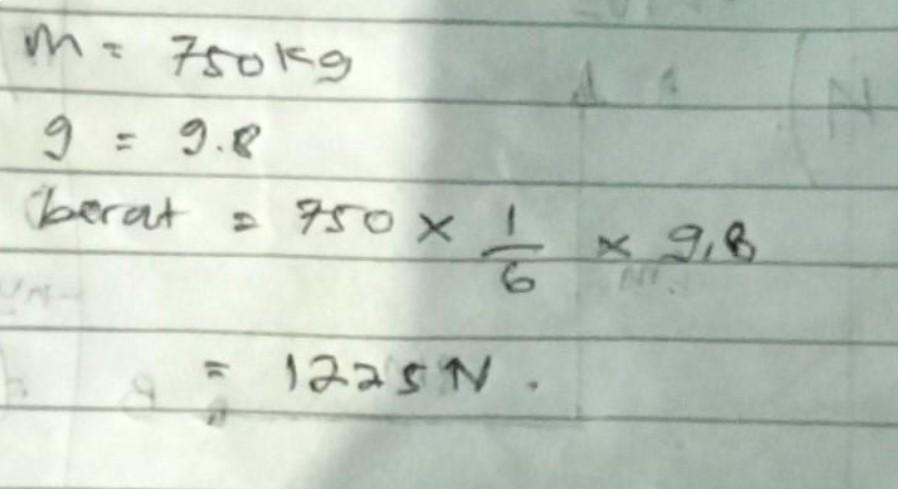 m = 750 kg
g = 9.8
berat = 750 × 1/6 × 9,8
= 1225 N.